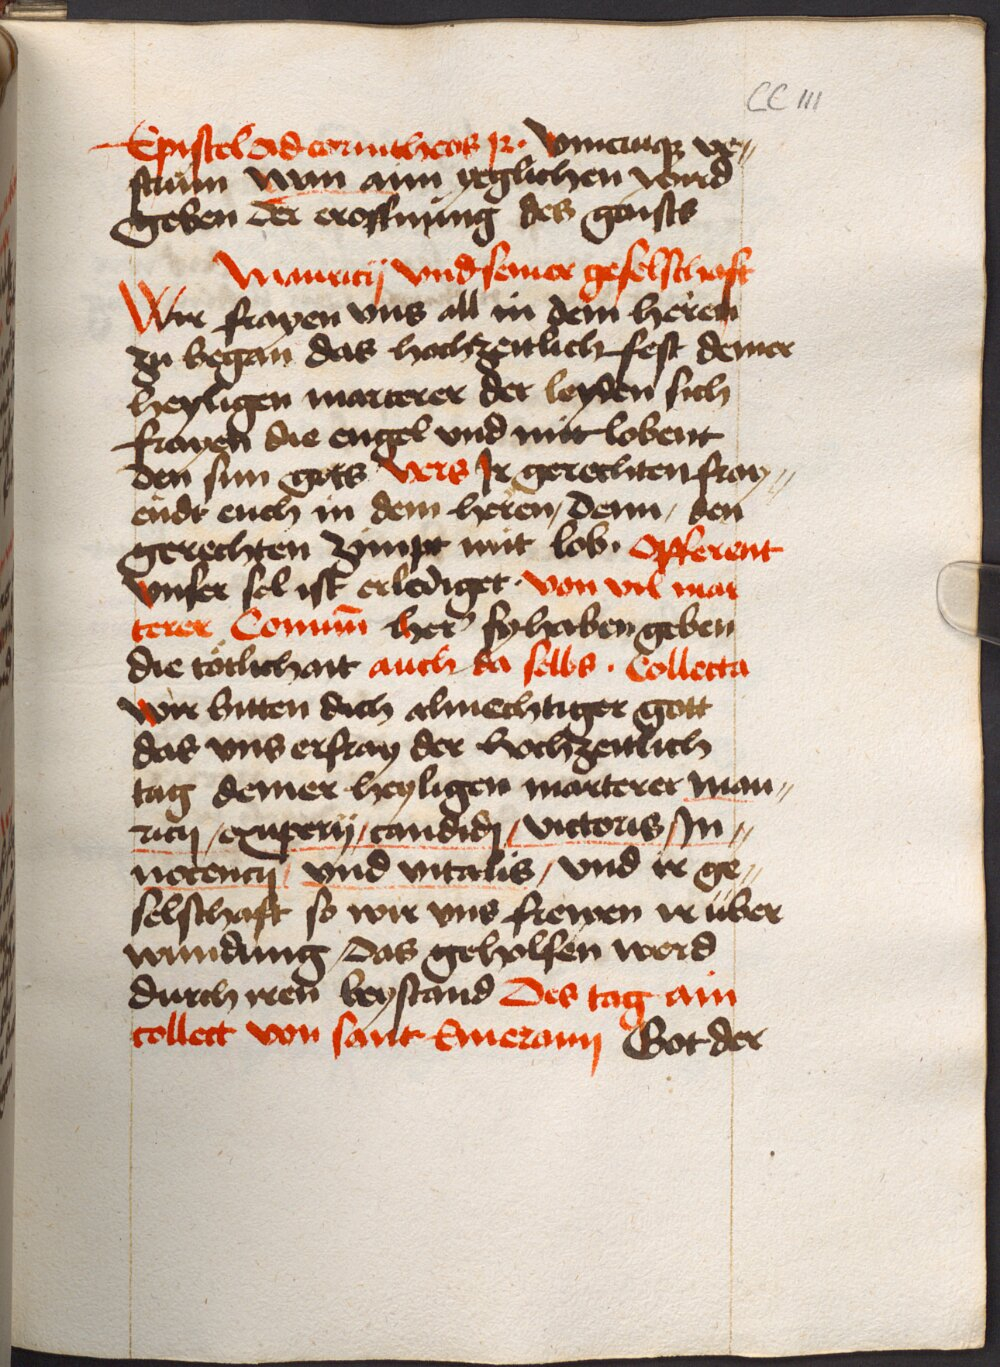 CC III
Epistel Ad corintheos ꝵ. Vnicuiqꝫ ve〃
strum Wan aim yeglichen würd
geben der eroffnung des gaists
Mauricij vnd seiner geselschaft
Wir frayen vns all in dem heren
zu began das hochzeitlich fest deiner
heyligen marterer der leyden sich
frayen die engel vnd mit lobent
den sun gots Vers Ir gerechten fray〃
endt euch in dem heren / Denn / den
gerechten zimpt mit lob. Offerent
Vnser sel ist erlediget. von vil mar
terer Comun̄ her sy haben geben
die tötlichait auch da selbs. Collecta
Wir bitten dich almechtiger gott
das vns erfray der hochzeitlich
tag deiner heyligen marterer Mau〃
ricij / exuperij / candidj / victoris / In〃
nocencij / vnd vitalis / vnd ir ge〃
selschaft so wir vns frewen ir über
windung / Das geholfen werd
durch iren beystand Des tag ain
collect von sant Emeramj Got der